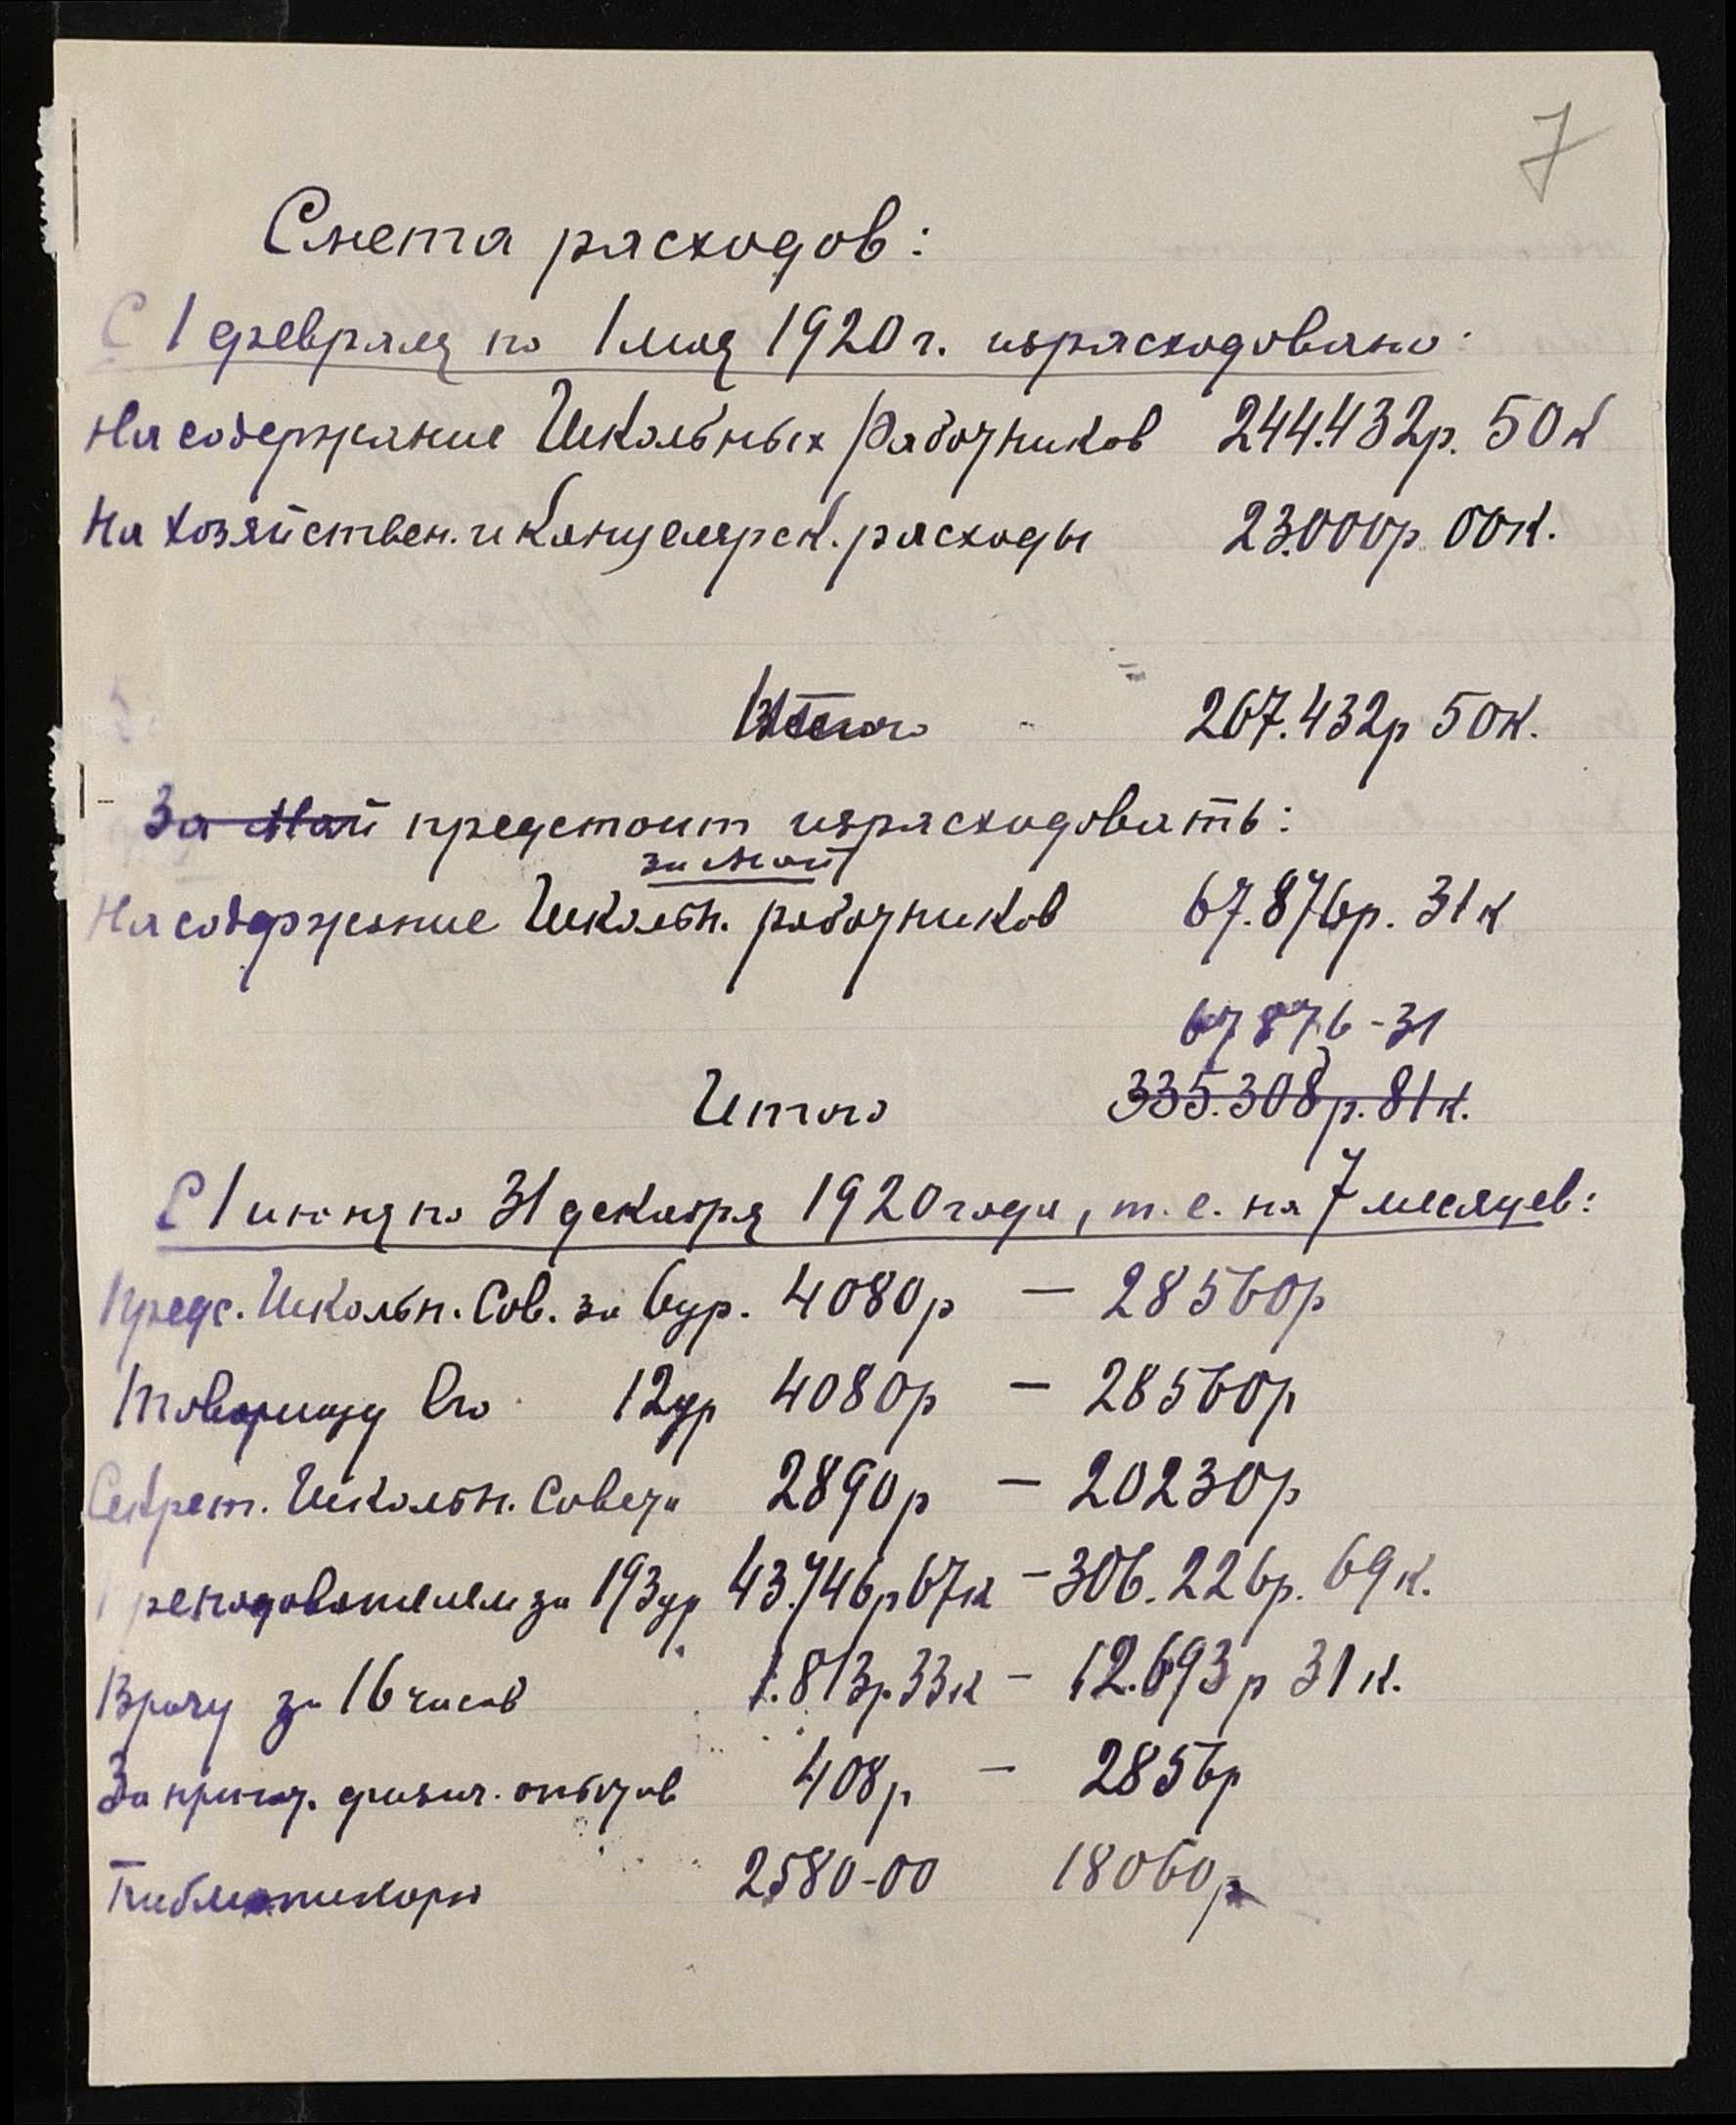 7
Смета расходов:
С 1 февраля по 1 мая 1920 г. израсходовано:
На содержание Школьных Работников 244.432р. 50к
На хозяйствен. и Канцелярск. расходы 23.000р. 00к.
Итого 267.432р 50к.
За Май предстоит израсходовать:
за май
На содержание Школьн. работников 67.876р. 31к
67876-31
Итого 335.308р. 81к.
С 1 июня по 31 декабря 1920 года, т. е. на 7 месяцев:
Предс. Школьн. Сов. за 6 ур. 4080р — 28560р
Товарищу Его 12 ур 4080р — 28560р
Секрет. Школьн. Совета 2890р — 20230р
Преподавателям за 193 ур 43.746р 67к — 306.226р. 69к.
Врачу за 16 часов 1.813р. 33к — 12.693р 31к.
За пригот. физич. опытов 408р — 2856р
Библиотекарю 2580-00 18060р